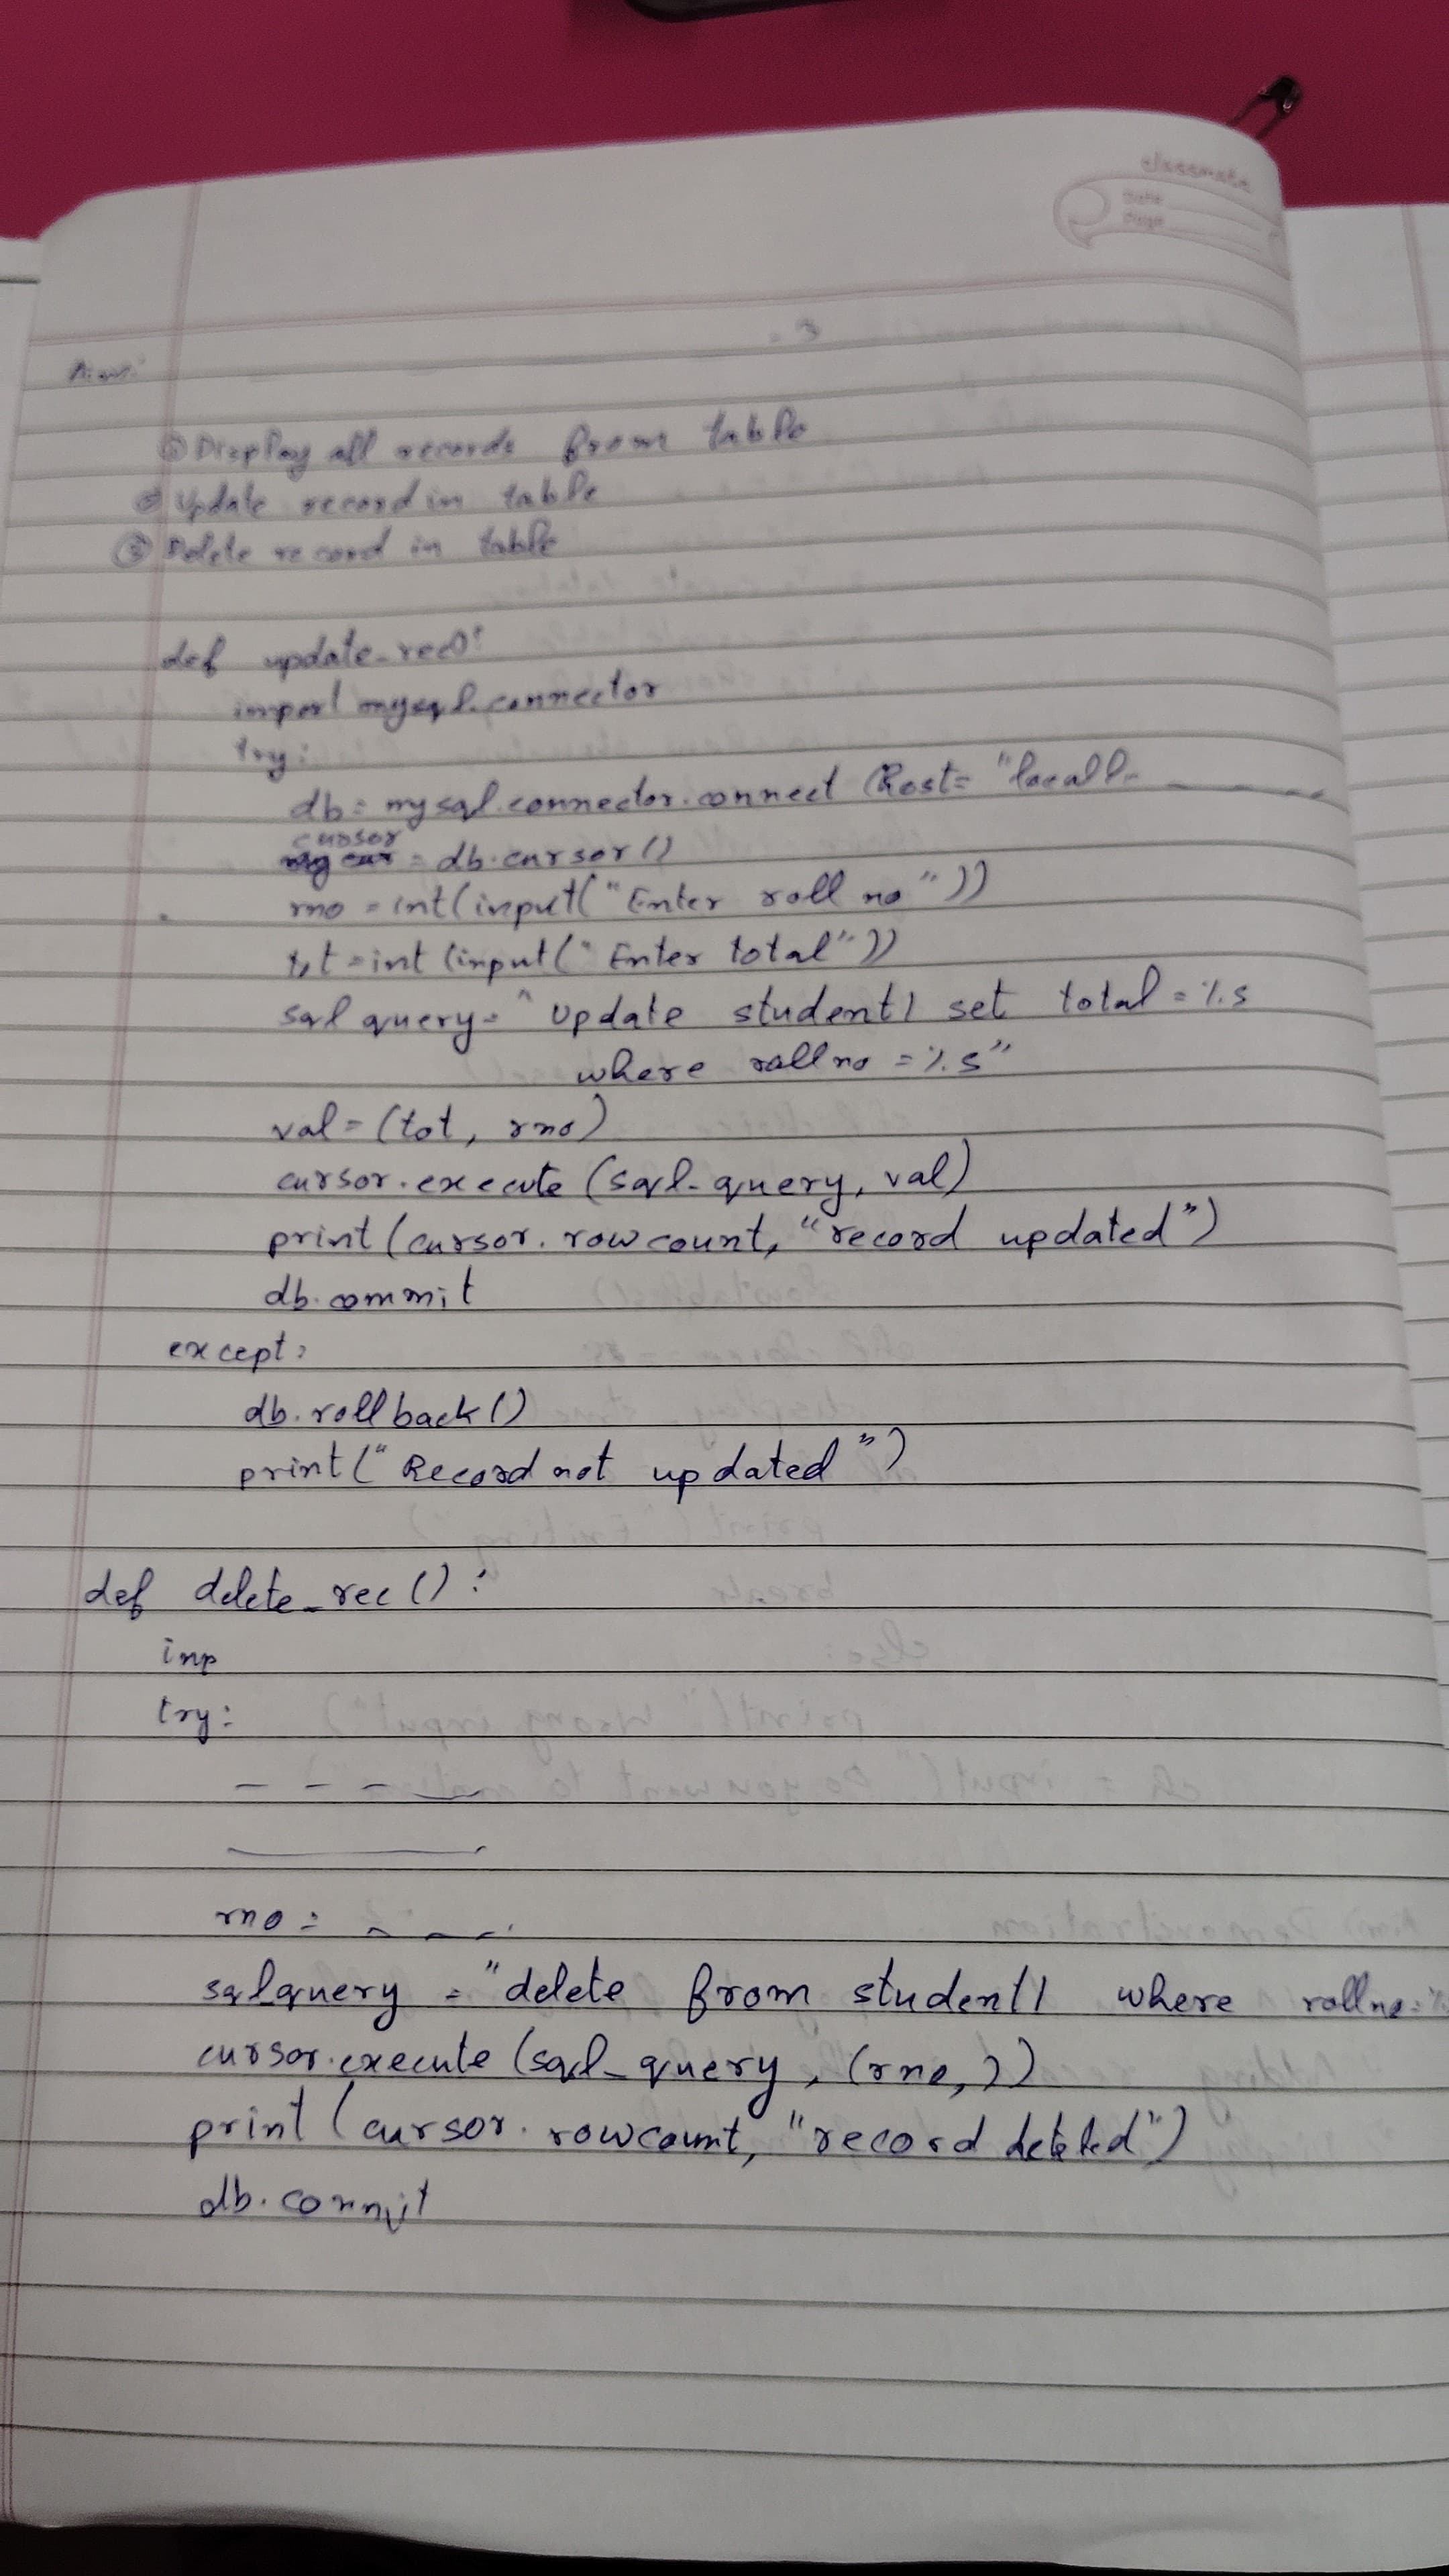 classmate
Date
Page
Aim:
① Display all records from table
② Update record in table
③ Delete record in table
def update_rec():
import mysql.connector
try:
db = mysql.connector.connect (host= "locall- - - - -
cursor
= db.cursor ()
rno = int(input("Enter roll no"))
tot = int (input("Enter total"))
sql query = "Update student1 set total = %s
where rollno = %s"
val = (tot, rno)
cursor.execute (sql_query, val)
print (cursor.rowcount, "record updated")
db.commit
except:
db.rollback ()
print ("Record not updated")
def delete_rec ():
inp
try:
- - - -
rno = - - -
sqlquery = "delete from student1 where rollno = %
cursor.execute (sql_query, (rno,))
print (cursor.rowcount, "record deleted")
db.commit